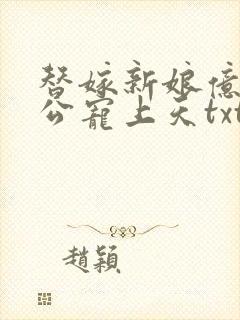 替嫁新娘億
公寵上天txt
趙穎